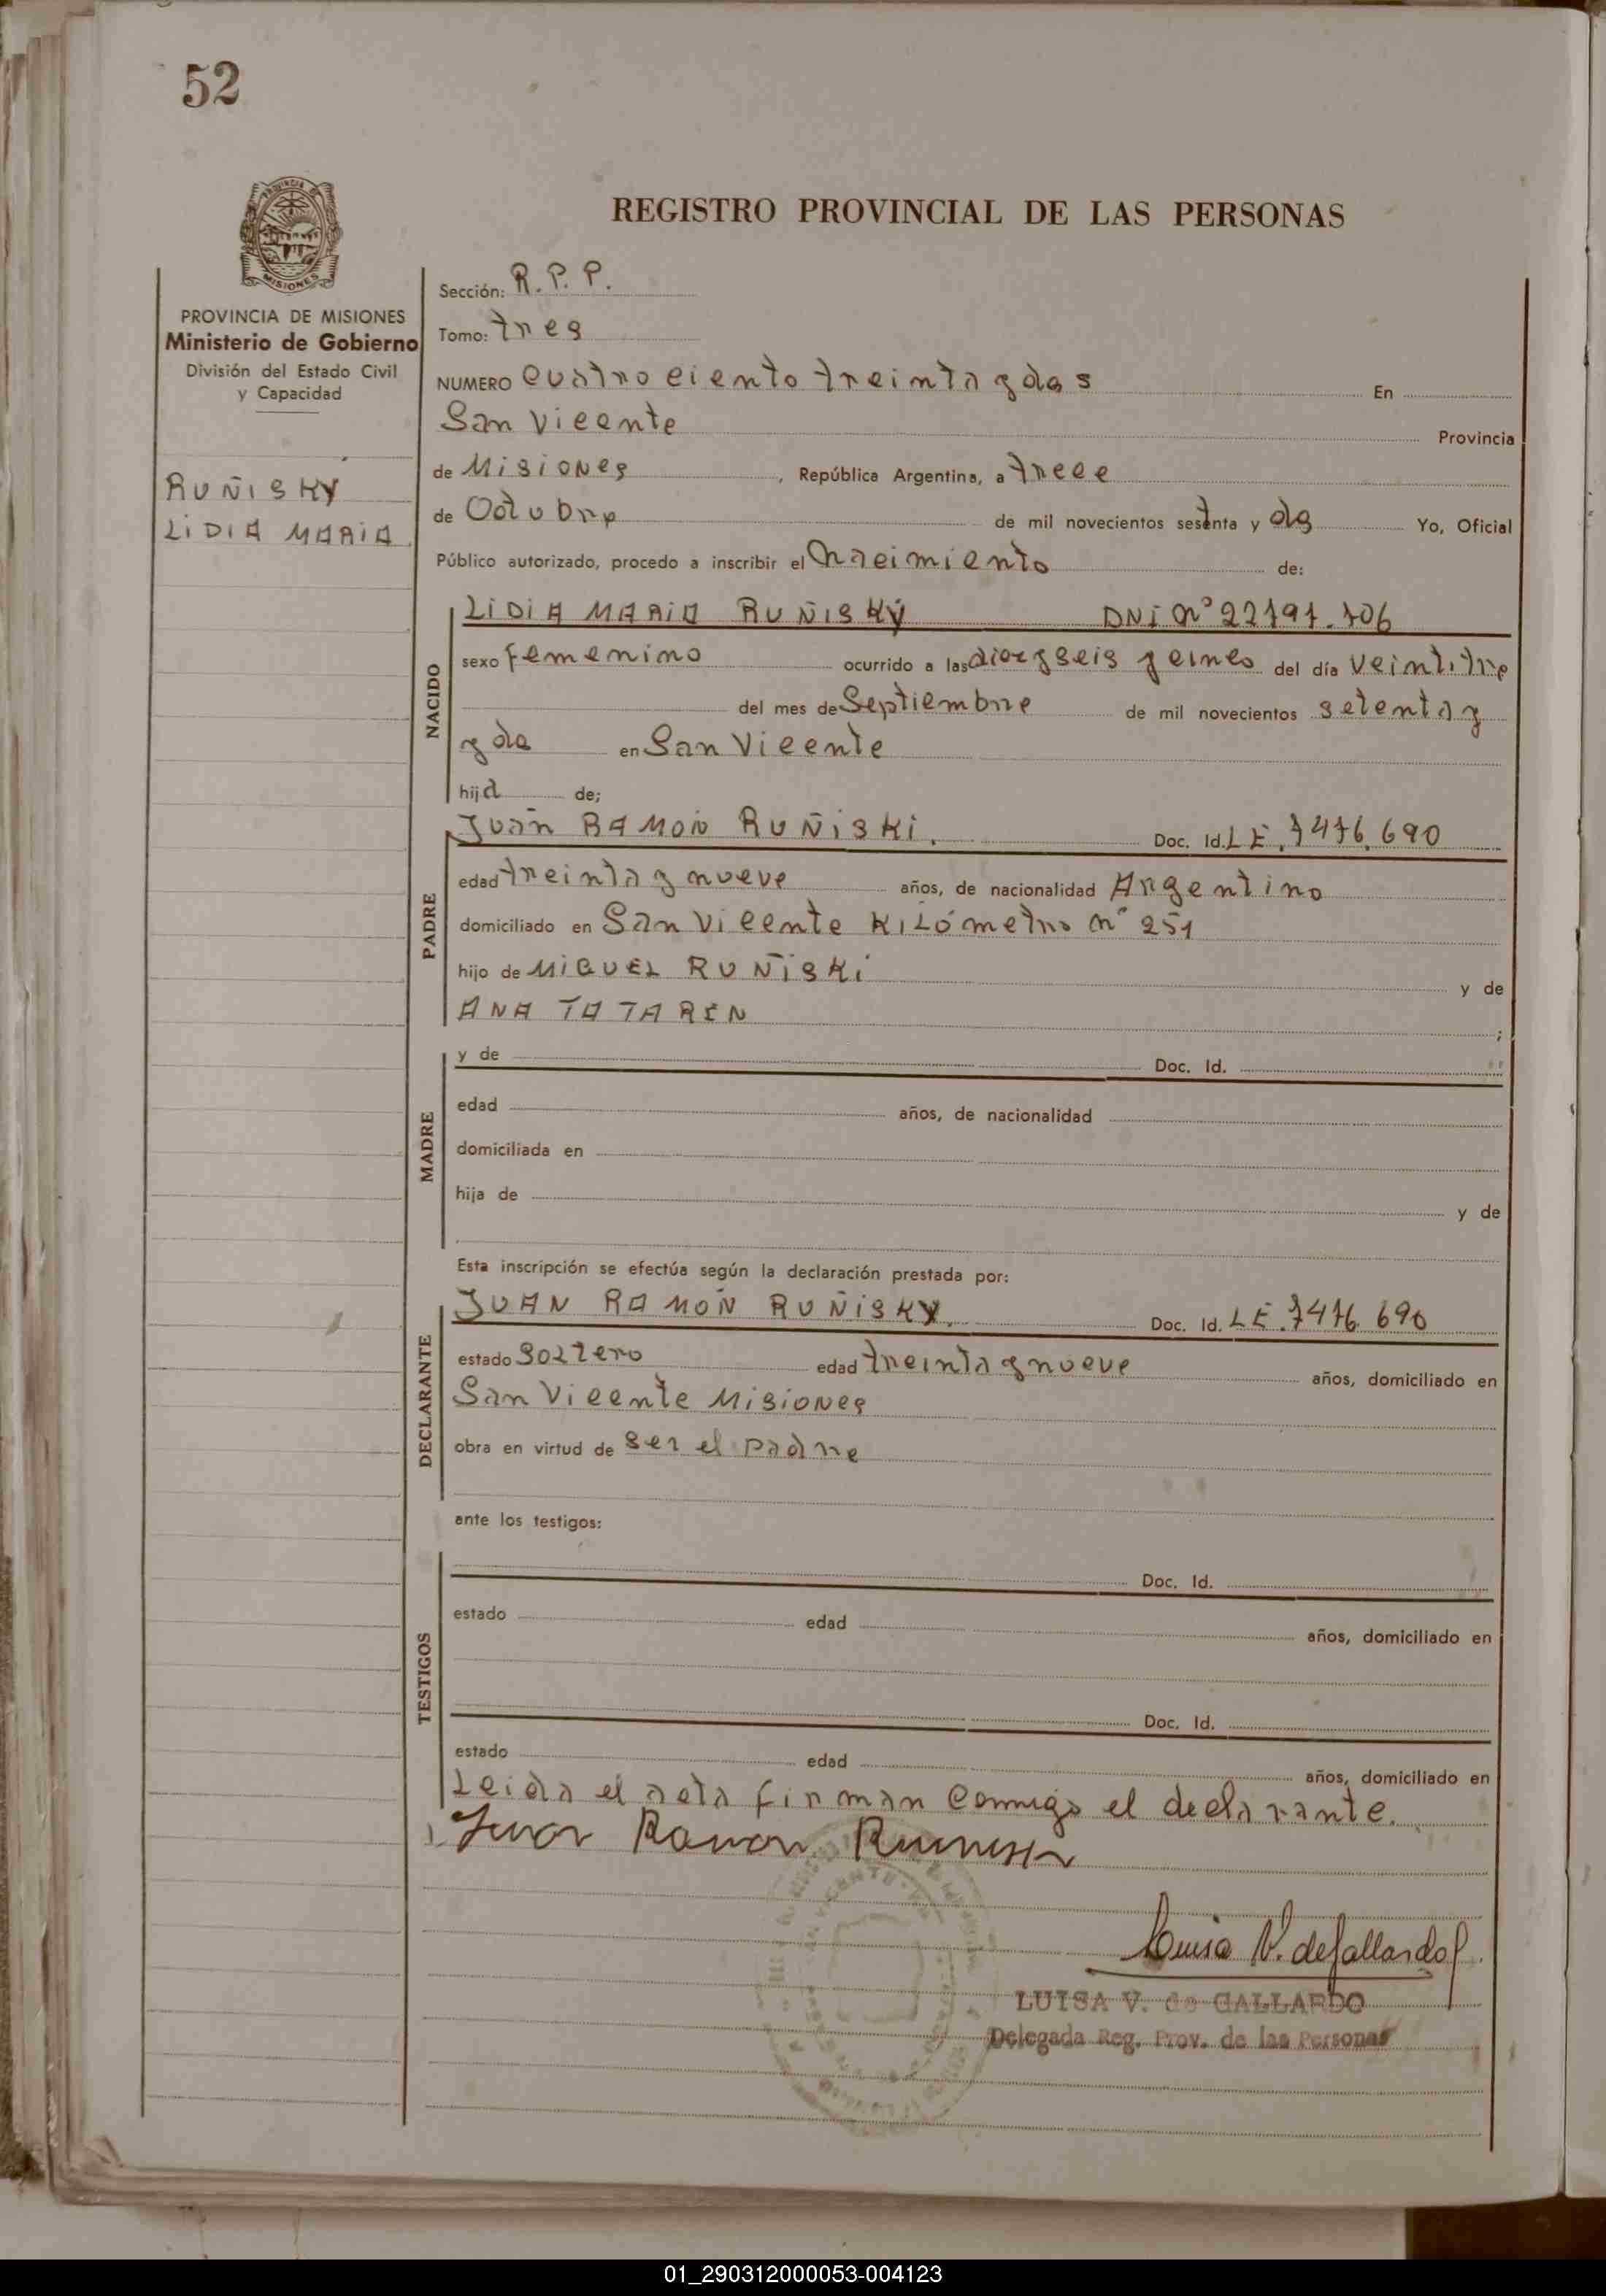 52
PROVINCIA DE MISIONES
REGISTRO PROVINCIAL DE LAS PERSONAS
PROVINCIA DE MISIONES
Ministerio de Gobierno
División del Estado Civil
y Capacidad
RUÑISKY
LIDIA MARIA
Sección: R.P.P.
Tomo: tres
NUMERO cuatrociento treinta y dos En
San Vicente Provincia
de Misiones, República Argentina, a trece
de Octubre de mil novecientos setenta y dos Yo, Oficial
Público autorizado, procedo a inscribir el nacimiento de:
NACIDO
LIDIA MARIA RUÑISKY DNI Nº 22.797.706
sexo femenino ocurrido a las diez y seis y cinco del día veintitre
del mes de Septiembre de mil novecientos setenta y
y do en San Vicente
hija de;
PADRE
Juan RAMON RUÑISKI. Doc. Id. LE. 7476.690
edad treinta y nueve años, de nacionalidad Argentino
domiciliado en San Vicente KILómetro nº 251
hijo de MIGUEL RUÑISKI y de
ANA TATAREN ;
MADRE
y de Doc. Id.
edad años, de nacionalidad
domiciliada en
hija de y de
Esta inscripción se efectúa según la declaración prestada por:
DECLARANTE
JUAN RAMON RUÑISKY. Doc. Id. LE. 7476.690
estado SOLTERO edad treinta y nueve años, domiciliado en
San Vicente Misiones
obra en virtud de ser el padre
ante los testigos:
TESTIGOS
Doc. Id.
estado edad años, domiciliado en
Doc. Id.
estado edad años, domiciliado en
Leida el acta firman conmigo el declarante.
Juan Ramon
Luisa V. de Gallardo
LUISA V. de GALLARDO
Delegada Reg. Prov. de las Personas
01_290312000053-004123